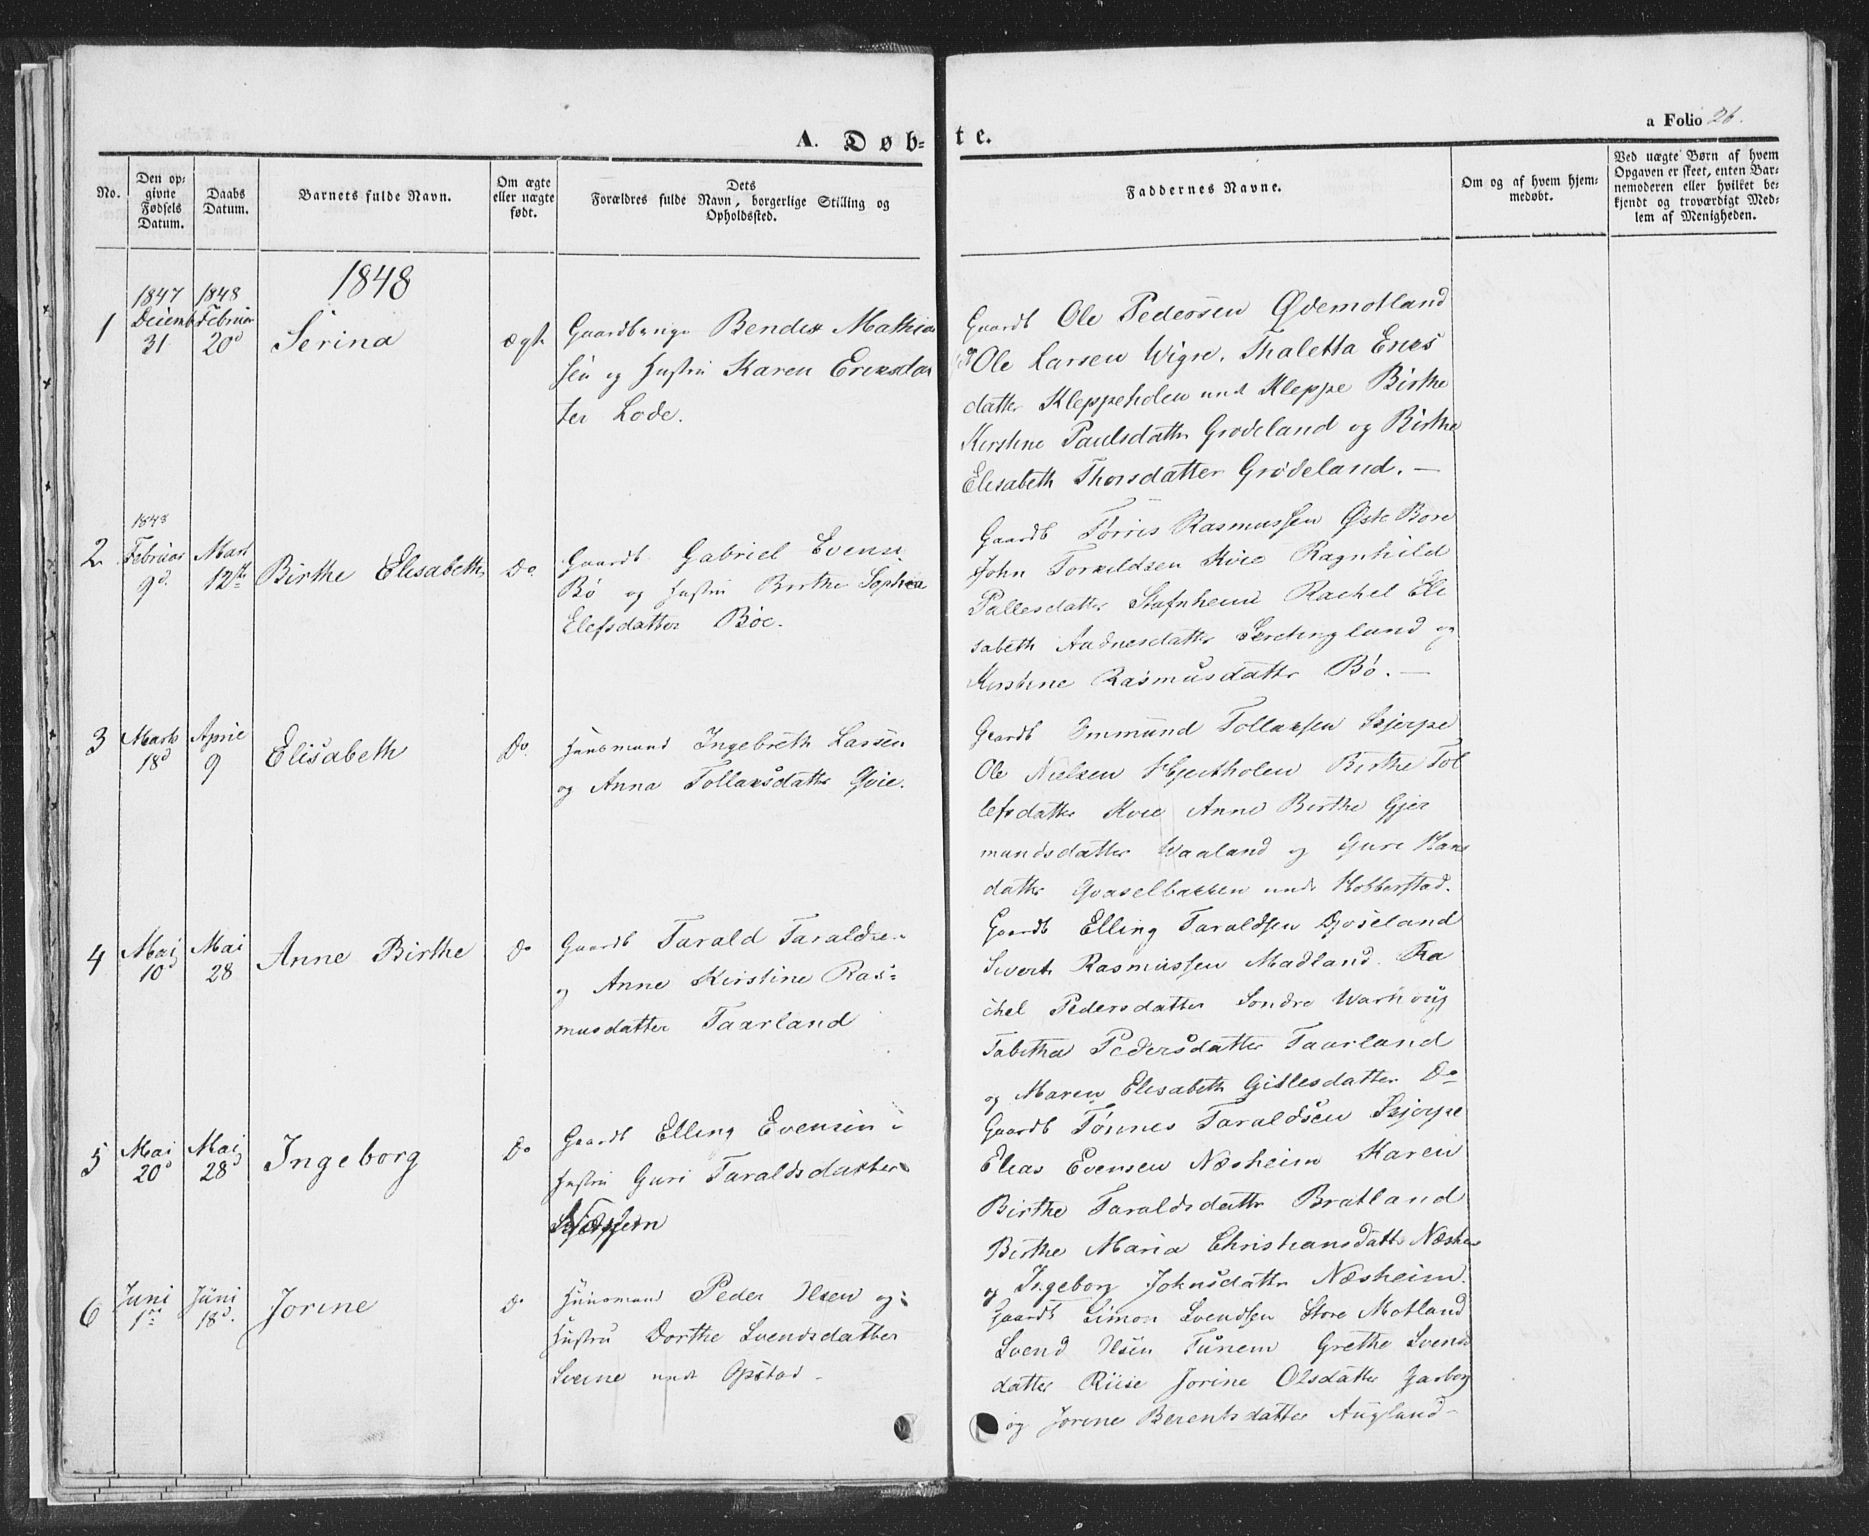 a Folio 26.
A. Døb- te.
No.
Den op-
givne
Fødsels
Datum.
Daabs
Datum.
Barnets fulde Navn.
Om ægte
eller uægte
født.
Dets
Forældres fulde Navn, borgerlige Stilling og
Opholdssted.
Faddernes Navne.
Om og af hvem hjem-
medøbt.
Ved uægte Børn af hvem
Opgaven er skeet, enten Bar-
nemoderen eller hvilket be-
kjendt og troværdigt Med-
lem af Menigheden.
1848
1
1847
Decemb
31
1848
Februar
20d
Serina
ægt.
Gaardbruger Bendix Mathia
sen og Hustru Karen Eriksdat
ter Lode.
Gaardb Ole Pederssen Ødemotland
Ole Larsen Wigre. Thaletta Enes
datter Kleppeholen und Kleppe Birthe
Kirstine Paulsdattr Grødeland og Birthe
Elisabeth Thorsdatter Grødeland. —
2
1848
Februar
9d.
Marts
12te
Birthe Elisabeth
Do
Gaardb. Gabriel Evens.
Bø og Hustru Birthe Sophia
Elefsdatter Bøe.
Gaardb Tørris Rasmussen Øste Bore
John Torkildsen Kvie Ragnhild
Pallesdatter Stafnheim Rachel Eli
sabeth Audnesdattr Serchingland og
Kirstine Rasmusdattr Bø. —
3
Marts
18d
April
9
Elisabeth
Do.
Huusmand Ingebreth Larsen
og Anna Tollaksdatter Qvie.
Gaardb Ommund Tollaksen Skjerpe
Ole Nielsen Hjertholen Birthe Tol
lefsdatter Kvie Anne Birthe Gjer
mundsdatter Waaland og Guri Hans
datter Gvaselbakken und Hobberstad.
4
Maij
10d
Mai
28
Anne Birthe
Do
Gaardb Tarald Taraldsen
og Anne Kirstine Ras-
musdatter Taarland
Gaardb Elling Taraldsen Djøseland
Sivert Rasmussen Madland. Ra
chel Pedersdatter Søndre Warhoug
Tabitha Pedersdatter Taarland
og Maren Elisabeth Gitlesdatter Do
5
Mai
20d
Maij
28d
Ingeborg
Do
Gaardb Elling Evensen i
Hustru Guri Taraldsdatter
Gaardb Tønnes Taraldsen Skjerpe
Elias Evensen Næsheim Karen
Birthe Taraldsdattr Bratland
Birthe Maria Christiansdattr Næshei
og Ingeborg Johnsdattr Næsheim.
6
Juni
1ste
Juni
18d.
Jorine
Do
Huusmand Peder Ilsen og
Hustru Dorthe Svendsdatter
Sveine und Opstad -
Gaardb Simon Svendsen Store Motland
Svend Ilsen Tunem Grethe Svends
datter Riise Jorine Olsdatter Garborg
og Jorine Berentsdatter Augland -